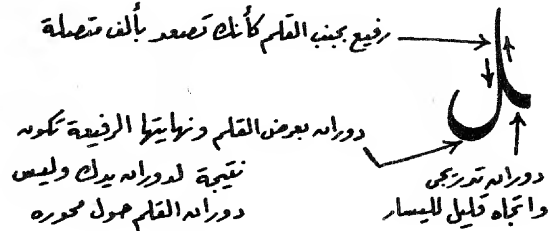 رفيع بجنب القلم كأنك تصعد بألف متصلة
دوران بعرض القلم ونهايتها الرفيعة تكون
نتيجة لدوران يدك وليس
دوران القلم حول محوره
دوران تدريجى
واتجاه قليل لليسار